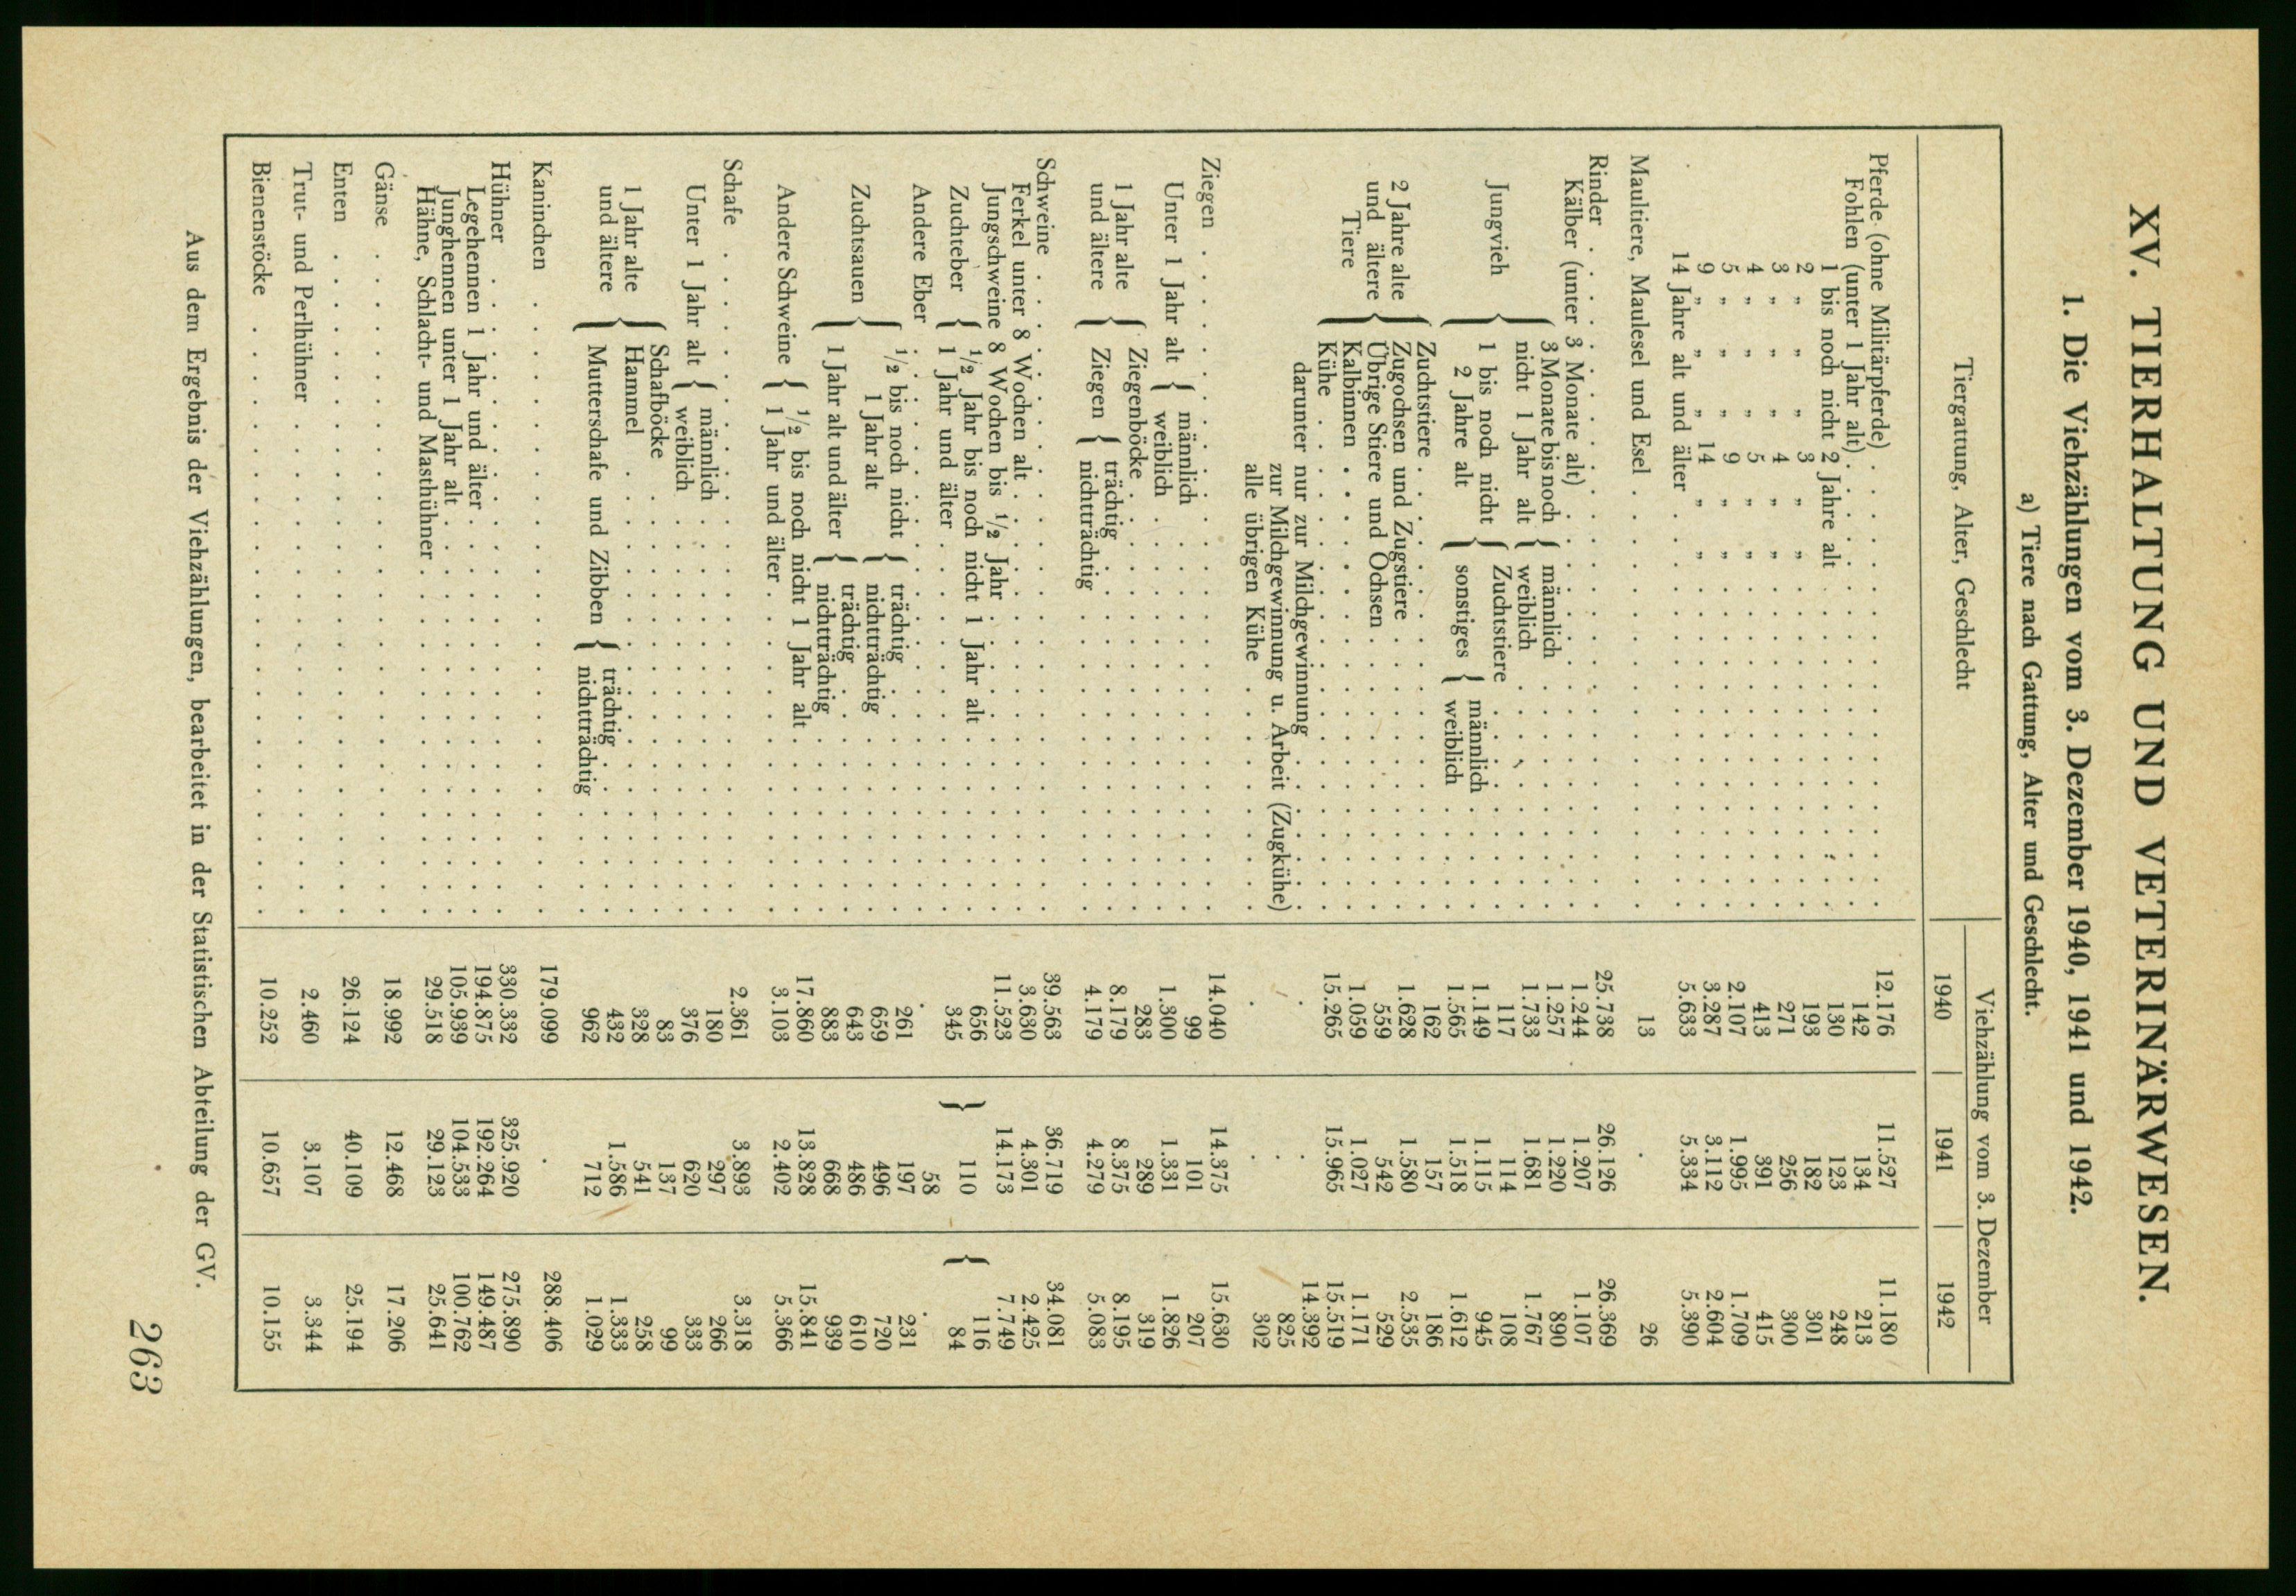 XV. TIERHALTUNG UND VETERINÄRWESEN.
1. Die Viehzählungen vom 3. Dezember 1940, 1941 und 1942.
a) Tiere nach Gattung, Alter und Geschlecht.
Tiergattung, Alter, Geschlecht Viehzählung vom 3. Dezember
1940 1941 1942
Pferde (ohne Militärpferde) 12.176 11.527 11.180
Fohlen (unter 1 Jahr alt) 142 134 213
1 bis noch nicht 2 Jahre alt 130 123 248
2 „ „ „ 3 „ „ 193 182 301
3 „ „ „ 4 „ „ 271 256 300
4 „ „ „ 5 „ „ 413 391 415
5 „ „ „ 9 „ „ 2.107 1.995 1.709
9 „ „ „ 14 „ „ 3.287 3.112 2.604
14 Jahre alt und älter 5.633 5.334 5.390
Maultiere, Maulesel und Esel 13 . 26
Rinder 25.738 26.126 26.369
Kälber (unter 3 Monate alt) 1.244 1.207 1.107
Jungvieh { 3 Monate bis noch nicht 1 Jahr alt { männlich 1.257 1.220 890
weiblich 1.733 1.681 1.767
1 bis noch nicht 2 Jahre alt { Zuchtstiere 117 114 108
sonstiges { männlich 1.149 1.115 945
weiblich 1.565 1.518 1.612
2 Jahre alte und ältere Tiere { Zuchtstiere 162 157 186
Zugochsen und Zugstiere 1.628 1.580 2.535
Übrige Stiere und Ochsen 559 542 529
Kalbinnen 1.059 1.027 1.171
Kühe 15.265 15.965 15.519
darunter nur zur Milchgewinnung . . 14.392
zur Milchgewinnung u. Arbeit (Zugkühe) 825
alle übrigen Kühe . . 302
Ziegen 14.040 14.375 15.630
Unter 1 Jahr alt { männlich 99 101 207
weiblich 1.300 1.331 1.826
1 Jahr alte und ältere { Ziegenböcke 283 289 319
Ziegen { trächtig 8.179 8.375 8.195
nichtträchtig 4.179 4.279 5.083
Schweine 39.563 36.719 34.081
Ferkel unter 8 Wochen alt 3.630 4.301 2.425
Jungschweine 8 Wochen bis 1/2 Jahr 11.523 14.173 7.749
Zuchteber { 1/2 Jahr bis noch nicht 1 Jahr alt 656 } 110 { 116
1 Jahr und älter 345 84
Andere Eber . 58 .
Zuchtsauen { 1/2 bis noch nicht 1 Jahr alt { trächtig 261 197 231
nichtträchtig 659 496 720
1 Jahr alt und älter { trächtig 643 486 610
nichtträchtig 883 668 939
Andere Schweine { 1/2 bis noch nicht 1 Jahr alt 17.860 13.828 15.841
1 Jahr und älter 3.103 2.402 5.366
Schafe 2.361 3.893 3.318
Unter 1 Jahr alt { männlich 180 297 266
weiblich 376 620 333
1 Jahr alte und ältere { Schafböcke 83 137 99
Hammel 328 541 258
Mutterschafe und Zibben { trächtig 432 1.586 1.333
nichtträchtig 962 712 1.029
Kaninchen 179.099 . 288.406
Hühner 330.332 325.920 275.890
Legehennen 1 Jahr und älter 194.875 192.264 149.487
Junghennen unter 1 Jahr alt 105.939 104.533 100.762
Hähne, Schlacht- und Masthühner 29.518 29.123 25.641
Gänse 18.992 12.468 17.206
Enten 26.124 40.109 25.194
Trut- und Perlhühner 2.460 3.107 3.344
Bienenstöcke 10.252 10.657 10.155
Aus dem Ergebnis der Viehzählungen, bearbeitet in der Statistischen Abteilung der GV.
263